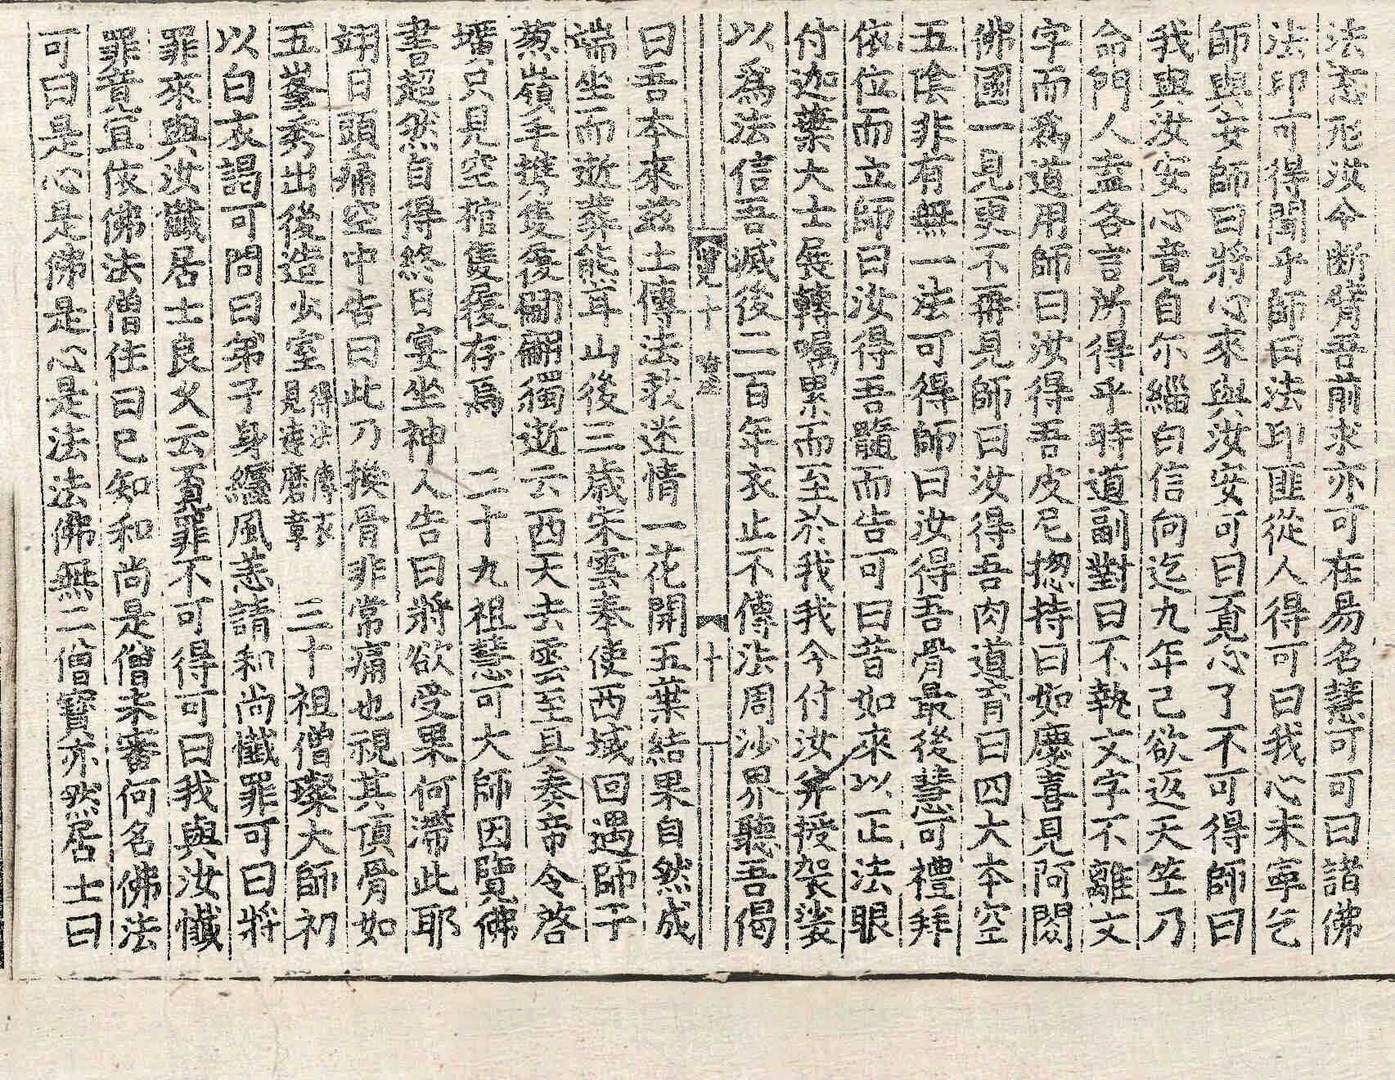 法忘形汝今断臂吾前求亦可在易名慧可可曰諸佛
法印可得聞乎師曰法印匪從人得可曰我心未寧乞
師與安師曰將心來與汝安可曰覔心了不可得師曰
我與汝安心竟自尒緇白信向迄九年已欲返天竺乃
命門人盍各言所得乎時道副對曰不執文字不離文
字而爲道用師曰汝得吾皮尼揔持曰如慶喜見阿閦
佛國一見更不再見師曰汝得吾肉道育曰四大本空
五陰非有無一法可得師曰汝得吾骨最後慧可禮拜
依位而立師曰汝得吾髓而告可曰昔如來以正法眼
付迦葉大士展轉嘱累而至於我我今付汝并授袈裟
以爲法信吾滅後二百年衣止不傳法周沙界聽吾偈
十
曰吾本來兹土傳法救迷情一花開五葉結果自然成
端坐而逝葬熊耳山後三歲宋雲奉使西域回遇師于
葱嶺手携隻履翩翩獨逝云西天去雲至具奏帝令啓
壙只見空棺隻履存焉 二十九祖慧可大師因覽佛
書超然自得終日宴坐神人告曰將欲受果何滯此耶
翊日頭痛空中告曰此乃換骨非常痛也視其頂骨如
五峯秀出後造少室得法傳衣見達磨章 三十祖僧璨大師初
以白衣謁可問曰弟子身纏風恙請和尚懺罪可曰將
罪來與汝懺居士良久云覔罪不可得可曰我與汝懺
罪竟宜依佛法僧住曰已知和尚是僧未審何名佛法
可曰是心是佛是心是法法佛無二僧寶亦然居士曰